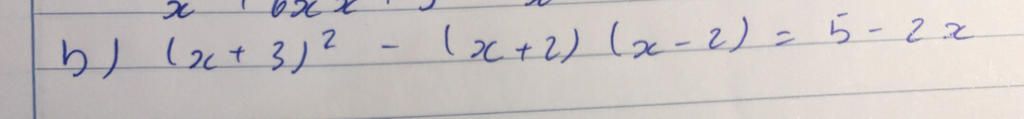 b) (x + 3)² - (x+2) (x-2) = 5 - 2x